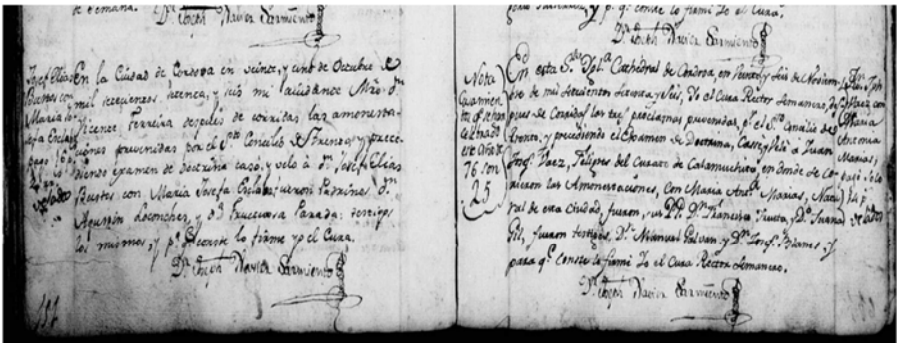 de semana.
Dr. Joseph Xavier Sarmiento
Josef Elias
Bustos con
Maria Jo-
sefa Esclaba
pago
velado
En la Ciudad de Cordova en veinte, y cinco de Octubre de
mil setecientos setenta, y seis mi Aiudante Mro. Dn.
Vicente Ferreira despues de corridas las amonesta-
ciones prevenidas por el Sto. Concilio de Trento, y prece-
diendo examen de doctrina casó, y veló à Dn. Josef Elias
Bustos con Maria Josefa Esclaba; fueron Padrinos Dn.
Agustin, y Da. Fructuosa Parada: testigos
los mismos, y pa. q. conste lo firme yo el Cura.
Dr. Joseph Xavier Sarmiento
y p. q. conste lo firmé Yo el Cura.
Dr. Joseph Xavier Sarmiento
Nota
Casamien
tos q. se han
celebrado
este Año de
76 son
25
En esta Sta. Iglª. Cathedral de Cordova, en Veinte, y Seis de Noviem-
bre de mil Setecientos Setenta y Seis, Yo el Cura Rector Semanero, des-
pues de Corridas las tres proclamas prevenidas, pr. el Sto. Concilio de
Trento, y precediendo el Examen de Doctrina, Casé, y Velé a Juan
Josef Paez, Feligres del Curato de Calamuchita en donde se co-
rrieron las Amonestaciones, con Maria Anta. Marias, Natu-
ral de esta Ciudad, fueron, sus PP. Dn. Francisco, y Da. Juana
Gil, fueron testigos, Dn. Manuel Galvan y Dn. Josef, y
para qe. Conste lo firmé Yo el Cura Rector Semanero.
Dr. Joseph Xavier Sarmiento
Jn. Jph
Paez con
Maria
Antonia
Marias,
pagó
velados